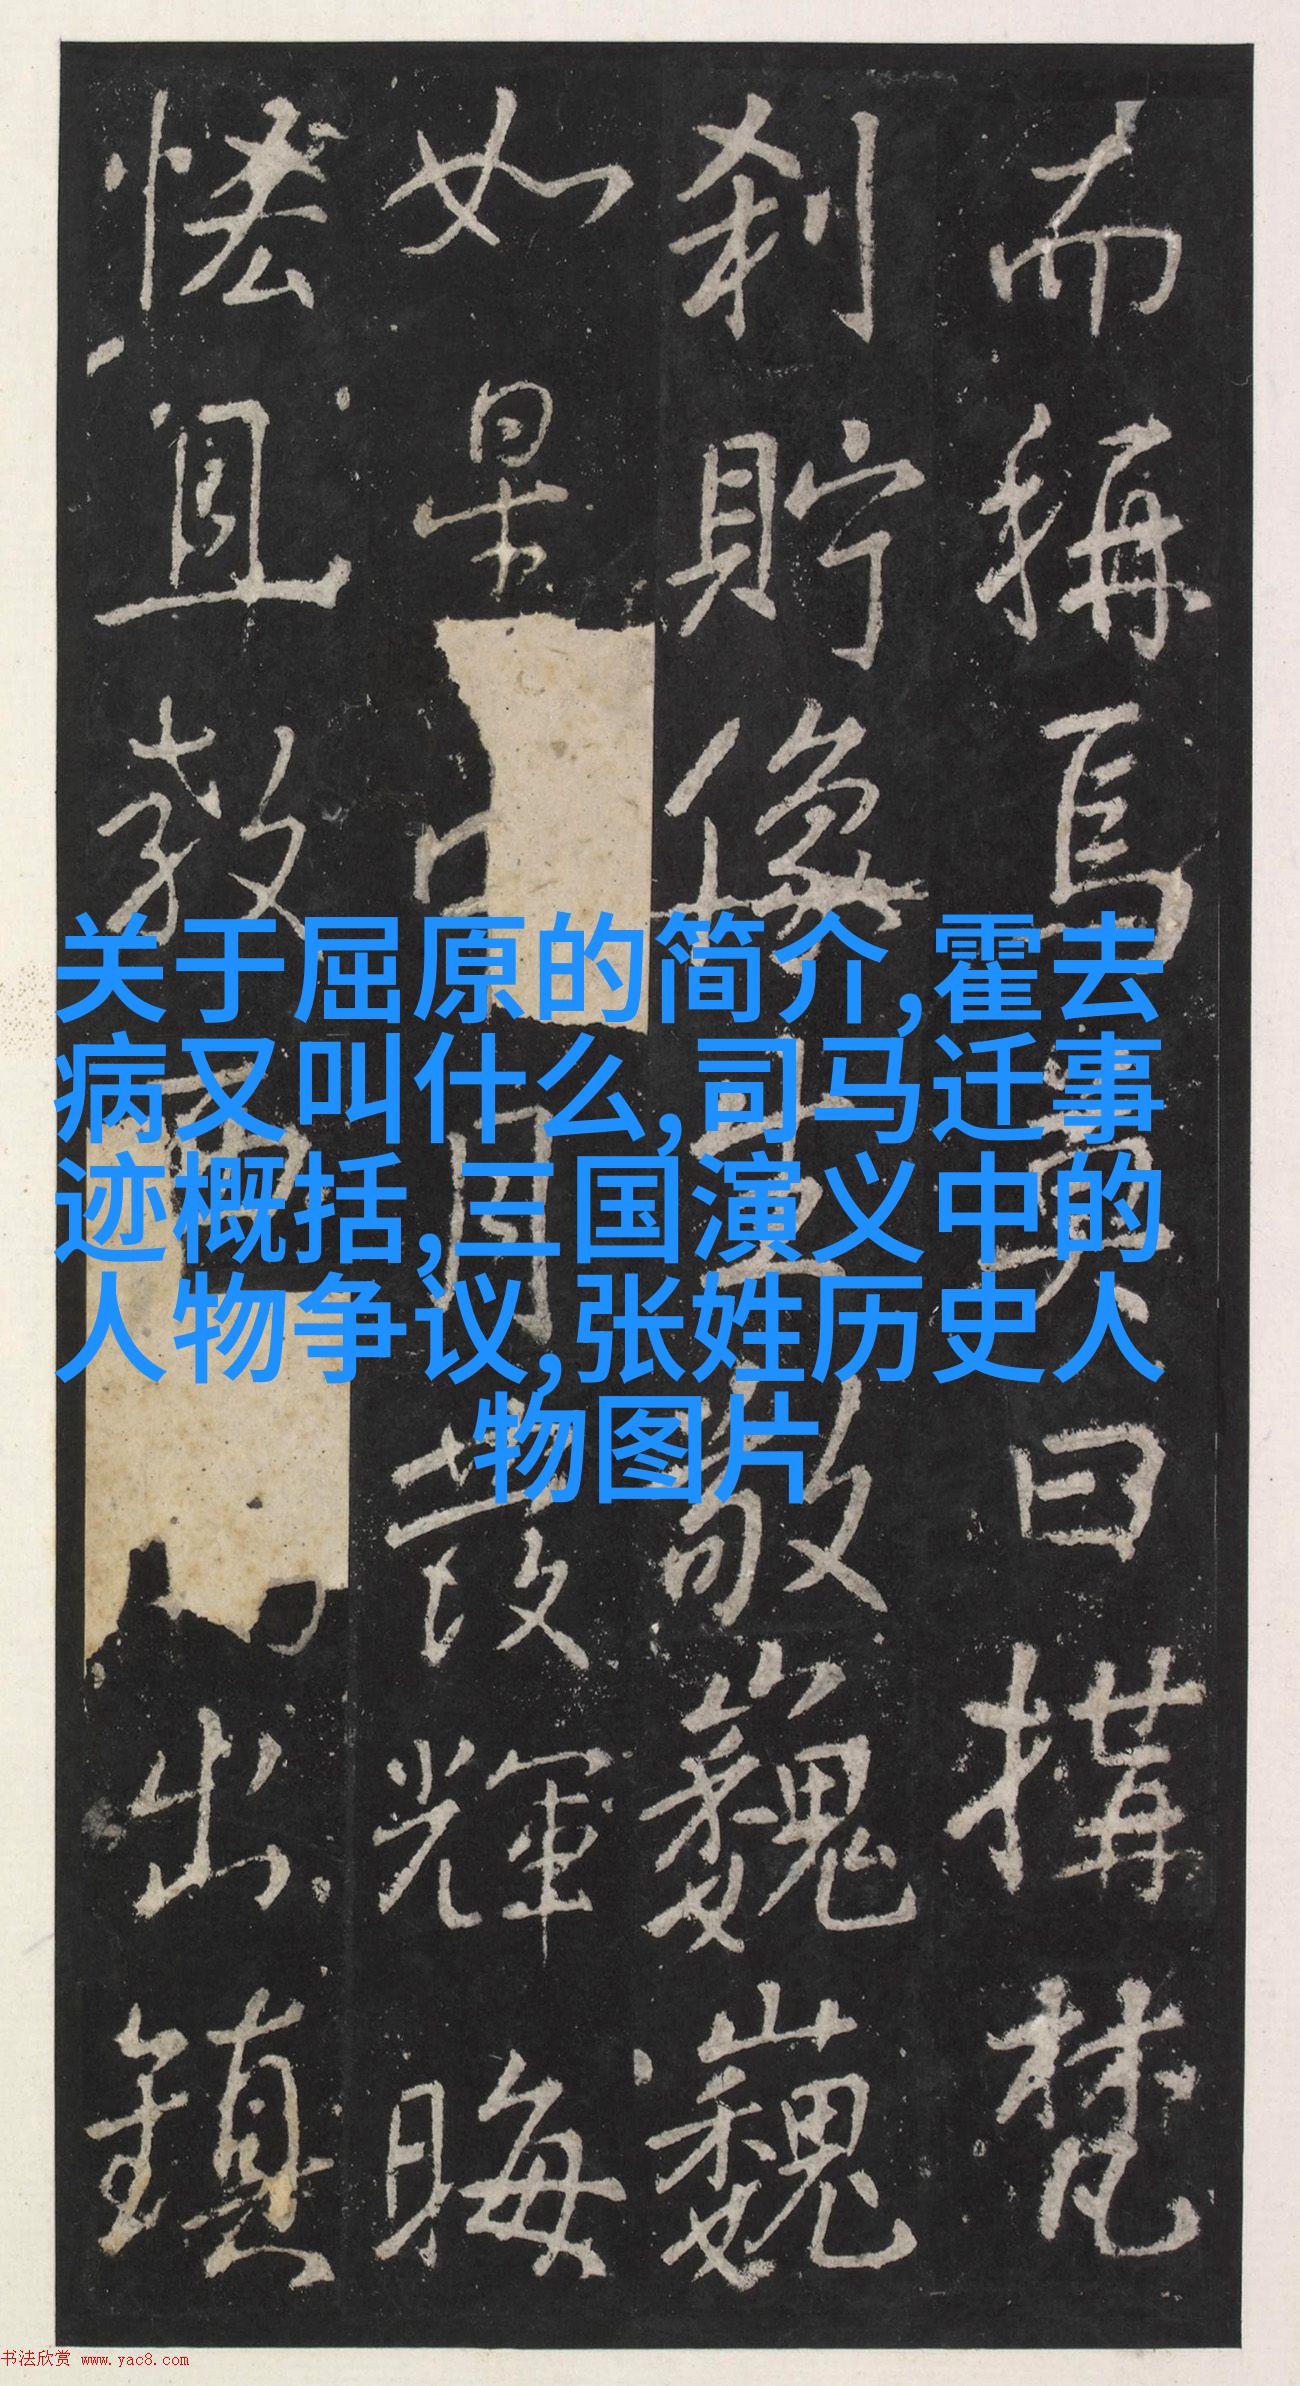 而稱焉曰搆梵
刹貯像敬巍巍
如月發輝晦
且教出鎮
关于屈原的简介,霍去
病又叫什么,司马迁事
迹概括,三国演义中的
人物争议,张姓历史人
物图片
书法欣赏 www.yac8.com